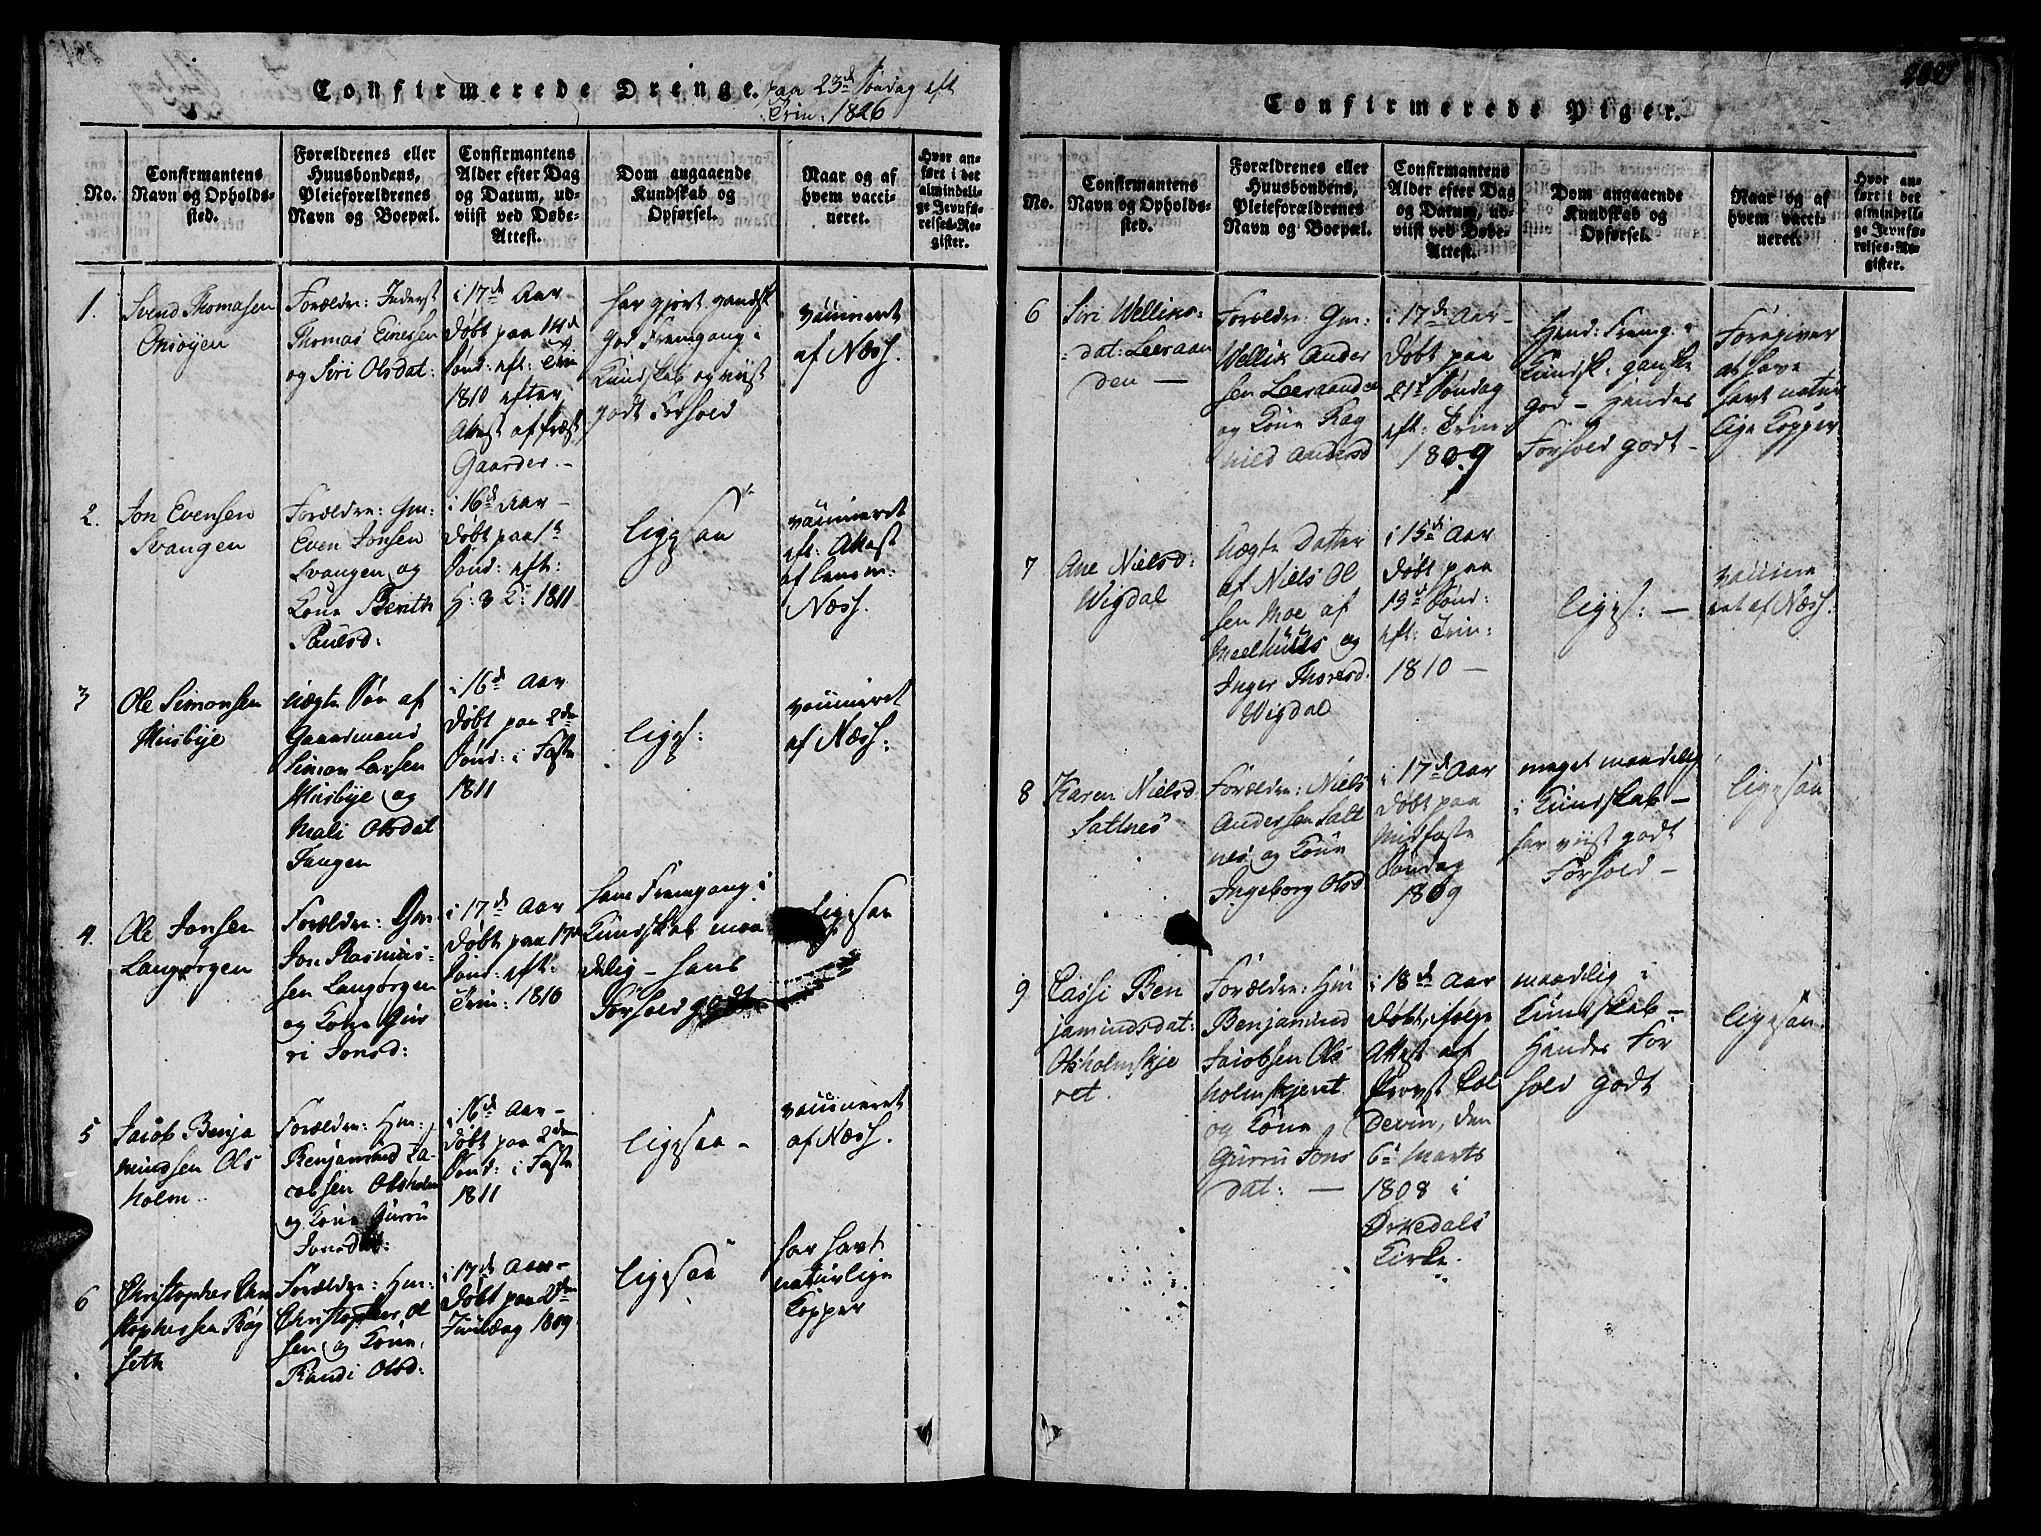 Confirmerede Drenge. paa 23de Søndag eft
Trin: 1826
No.
Confirmantens
Navn og Opholds-
sted.
Forældrenes eller
Huusbondens,
Pleieforældrenes
Navn og Boepæl.
Confirmantens
Alder efter Dag
og Datum, ud-
viist ved Døbe-
Attest.
Dom angaaende
Kundskab og
Opførsel.
Naar og af
hvem vacci-
neret.
Hvor an-
ført i det
almindeli-
ge Jevnfø-
relses-Re-
gister.
1.
Svend Thomasen
Onsøyen
Forældre: Inderst
Thomas Einersen
og Siri Olsdat:
i 17de Aar
Døbt paa 14de
Sønd: eft: Trin
1810 efter
Attest af Præst
Gaarder.-
har gjort gandsk
god Fremgang i
Kundskab og viist
godt Forhold
vaccineret
af Næss.
2.
Jon Evensen
Svangen
Forældre: Gm:
Even Jonsen
Svangen og
Kone Berith
Paulsd:
i 16de Aar-
Døbt paa 1ste
Sønd: eft:
H: 3 K: 1811
ligesaa
vaccineret
eft: Attest
af
Næss.
3
Ole Simonsen
Husbye
Uægte Søn af
Gaardmand
Simon Larsen
Husbye og
Mali Olsdat
Tangen
i 16de Aar
Døbt paa 2den
Sønd: i Faste
1811
liges:
vaccineret
af Næss:
4.
Ole Jonsen
Langørgen
Forældre: Gm
Jon Rasmus-
sen Langørgen
og Kone Gur
ri Jonsd:
i 17de Aar
Døbt paa 17de
Sønd: eft:
Trin: 1810
hans Fremgang i
Kundskab maa
delig - hans
Forhold godt
ligesaa
5
Jacob Benja
mindsen Ols
holm
Forældre: Hm:
Benjamind Ja-
cobsen Olsholm
og Kone Gurru
Jonsdat:
i 16de Aar-
Døbt paa 2den
Sønd: i Faste
1811
ligesaa -
vaccineret
af Næss.
6
Christopher Chri
stophersen Bøg
seth
Forældre: Hm:
Christopher Ol
sen og Kone
Randi Olsd:
i 17de Aar-
Døbt paa 2den
Juuledag 1809
ligesaa
har havt
naturlige
Kopper
Confirmerede Piger.
No.
Confirmantens
Navn og Opholds-
sted.
Forældrenes eller
Huusbondens,
Pleieforældrenes
Navn og Boepæl.
Confirmantens
Alder efter Dag
og Datum, ud-
viist ved Døbe-
Attest.
Dom angaaende
Kundskab og
Opførsel.
Naar og af
hvem vacci-
neret.
Hvor an-
ført i det
almindeli-
ge Jevnfø-
relses-Re-
gister.
6
Siri Welliks-
dat: Leeraan
den -
Forældre: Gm-
Wellik Ander
sen Leeraanden
og Kone Rag
nild Andersd
i 17de Aar-
Døbt paa
21de Søndag
eft: Trin:
1809
Hend: Fremg: i
Kundsk: ganske
god - Hendes
Forhold godt -
Foregiver
at have
havt natur
lige Kopper
7
Ane Nielsd:
Wigdal
Uægte Datter
af Niels Ol
sen Moe af
Meelhuus og
Inger Thoresd.
Wigdal
i 15de Aar
Døbt paa
15de Sønd:
eft: Trin:
1810 -
liges: -
vaccine
ret af Næss.
8
Karen Nielsd
Saltnes
Forældre: Niels
Andersen Salt
nes og Kone
Ingeborg Olsd
i 17de Aar
Døbt paa
Midfaste
Søndag
1809
meget maadelig
i Kundskab -
har viist godt
Forhold -
ligesaa
9
Lassi Ben
jamindsdat:
Olsholmskje
ret.
Forældre: Hm
Benjamind
Jacobsen Ols
holmskjeret
og Kone
Gurru Jons
dat: -
i 18de Aar
Døbt, ifølge
Attest af
Provst Col
devin, den
6te Marts
1808 i
Ørkedals
Kirke.
maadelig i
Kundskab -
Hendes For
hold godt
ligesaa.